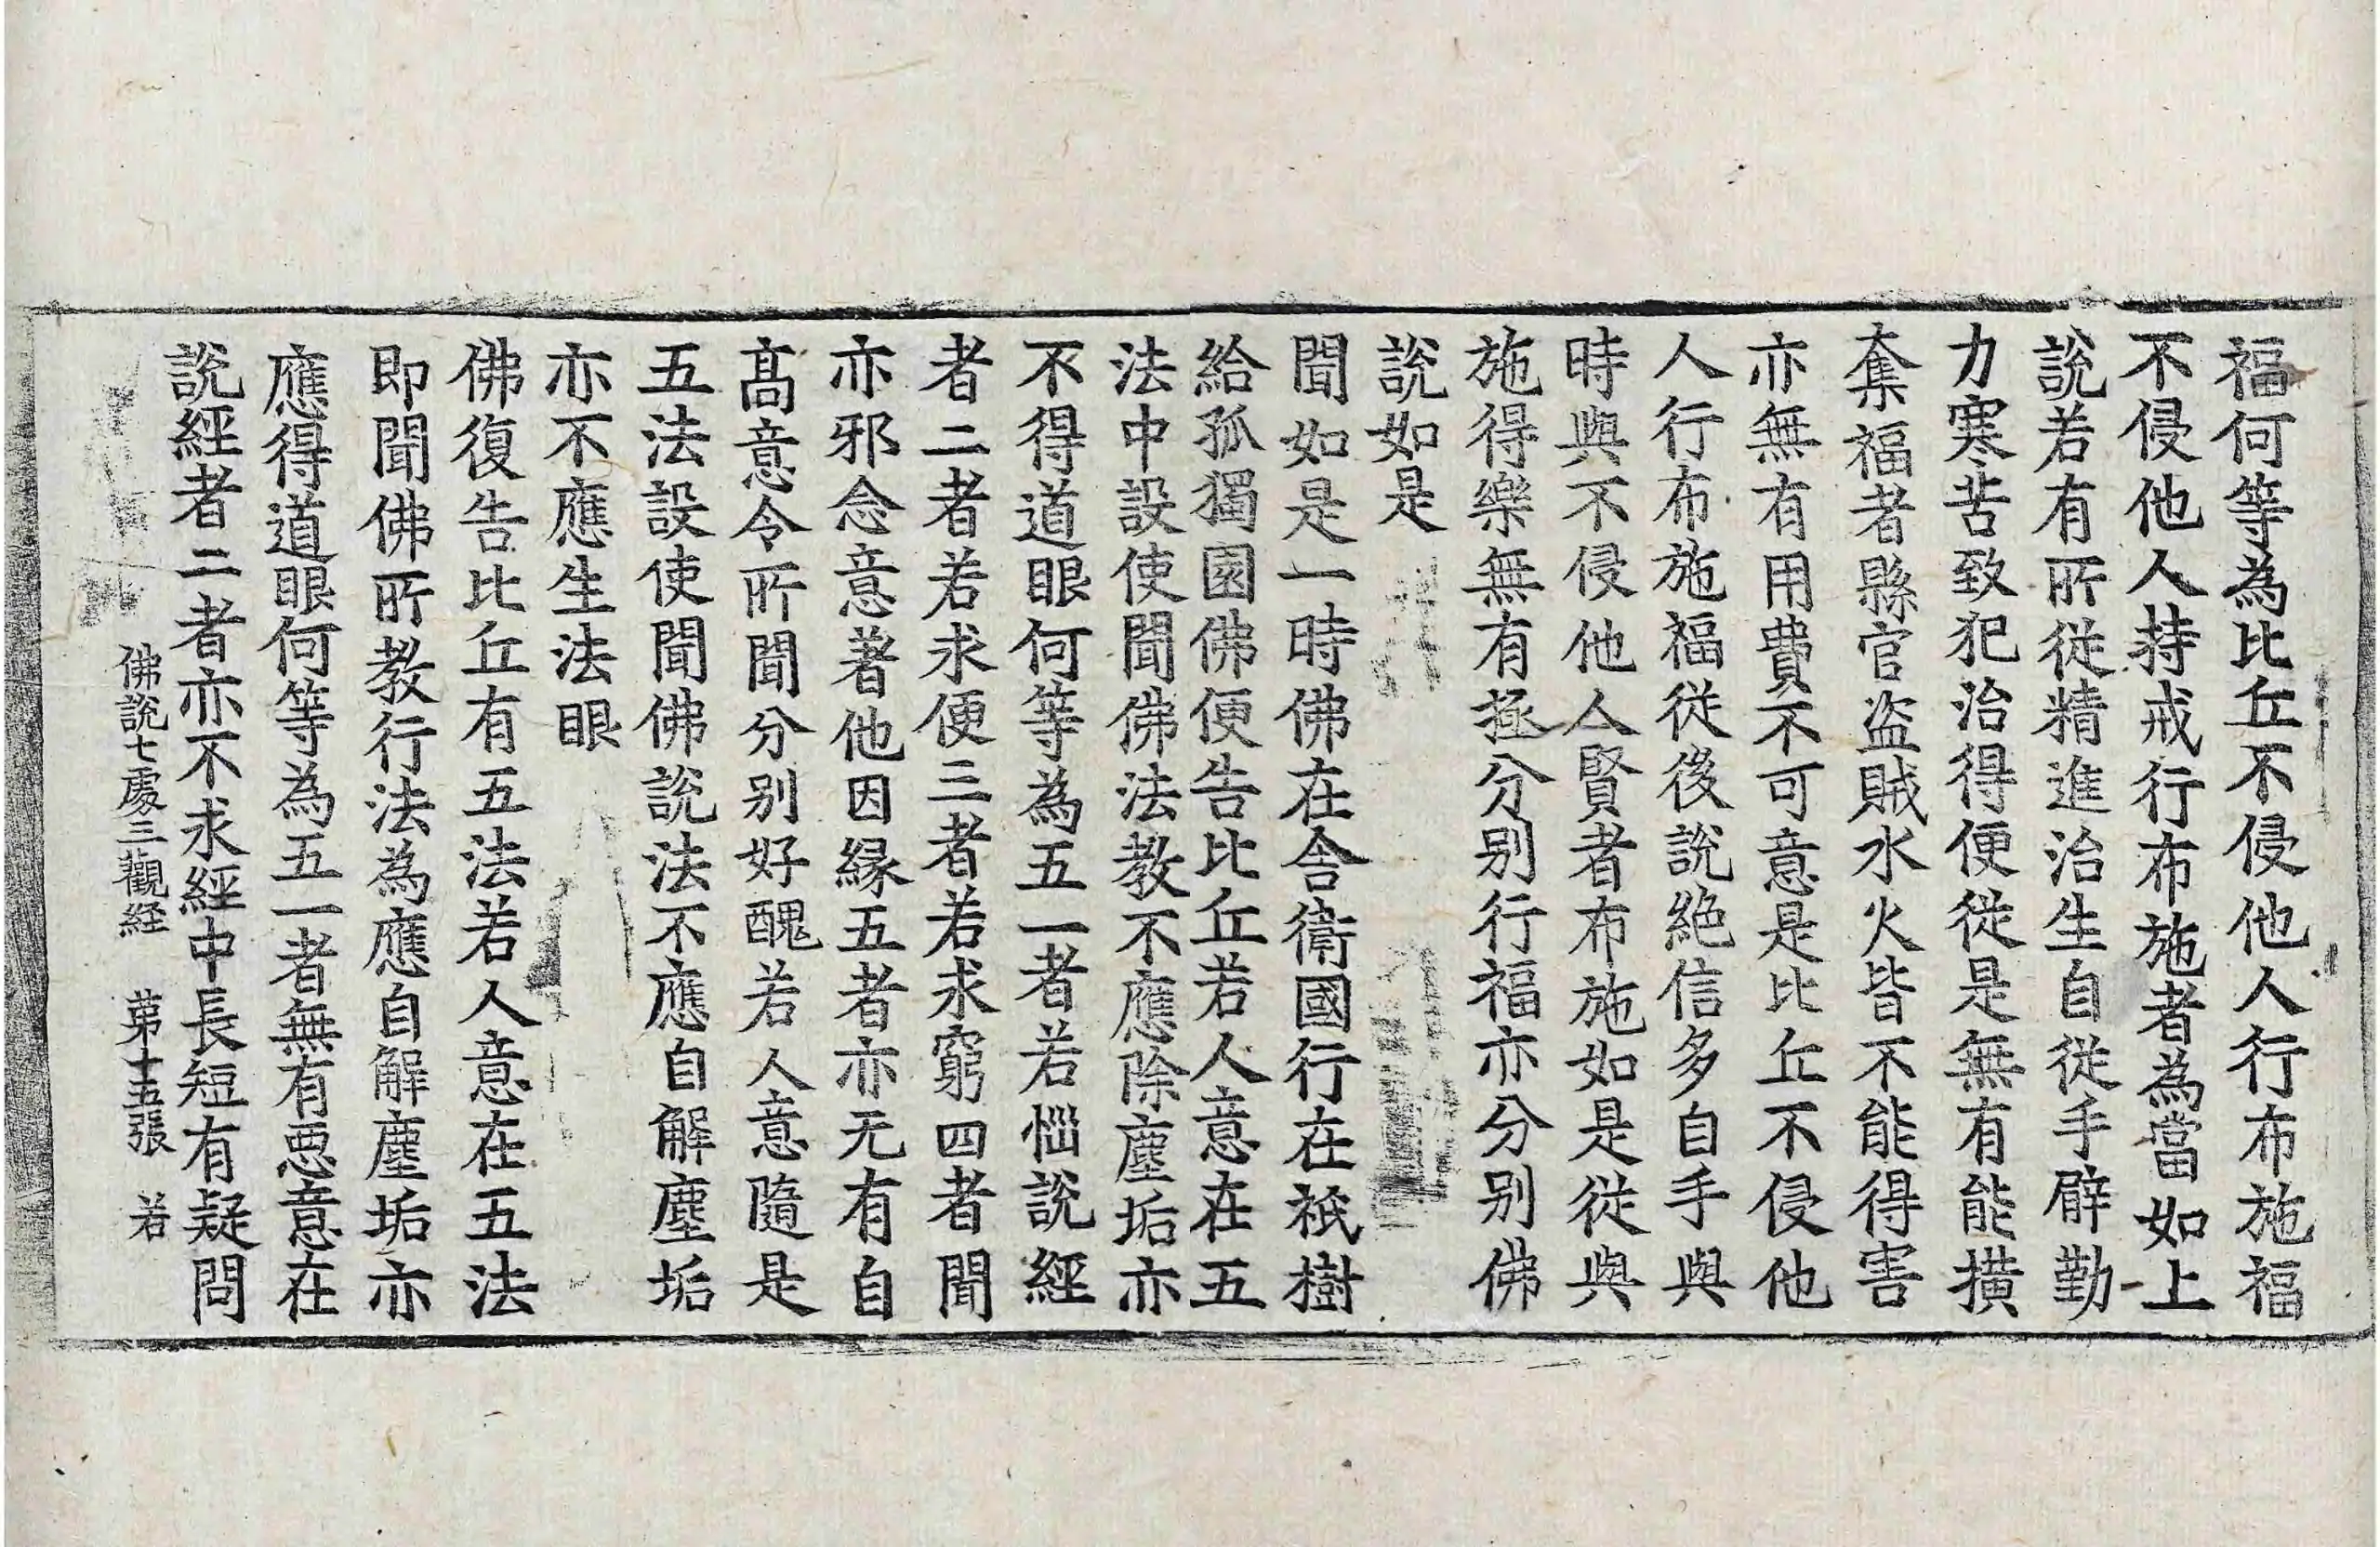 福何等為比丘不侵他人行布施福
不侵他人持戒行布施者為當如上
說若有所從精進治生自從手臂勤
力寒苦致犯治得便從是無有能橫
奪福者縣官盜賊水火皆不能得害
亦無有用費不可意是比丘不侵他
人行布施福從後說絕信多自手與
時與不侵他人賢者布施如是從與
施得樂無有極分別行福亦分別佛
說如是
聞如是一時佛在舍衛國行在祇樹
給孤獨園佛便告比丘若人意在五
法中設使聞佛法教不應除塵垢亦
不得道眼何等為五一者若惱說經
者二者若求便三者若求窮四者聞
亦邪念意著他因緣五者亦无有自
高意令所聞分別好醜若人意隨是
五法設使聞佛說法不應自解塵垢
亦不應生法眼
佛復告比丘有五法若人意在五法
即聞佛所教行法為應自解塵垢亦
應得道眼何等為五一者無有惡意在
說經者二者亦不求經中長短有疑問
佛說七處三觀経 苐十五張 若